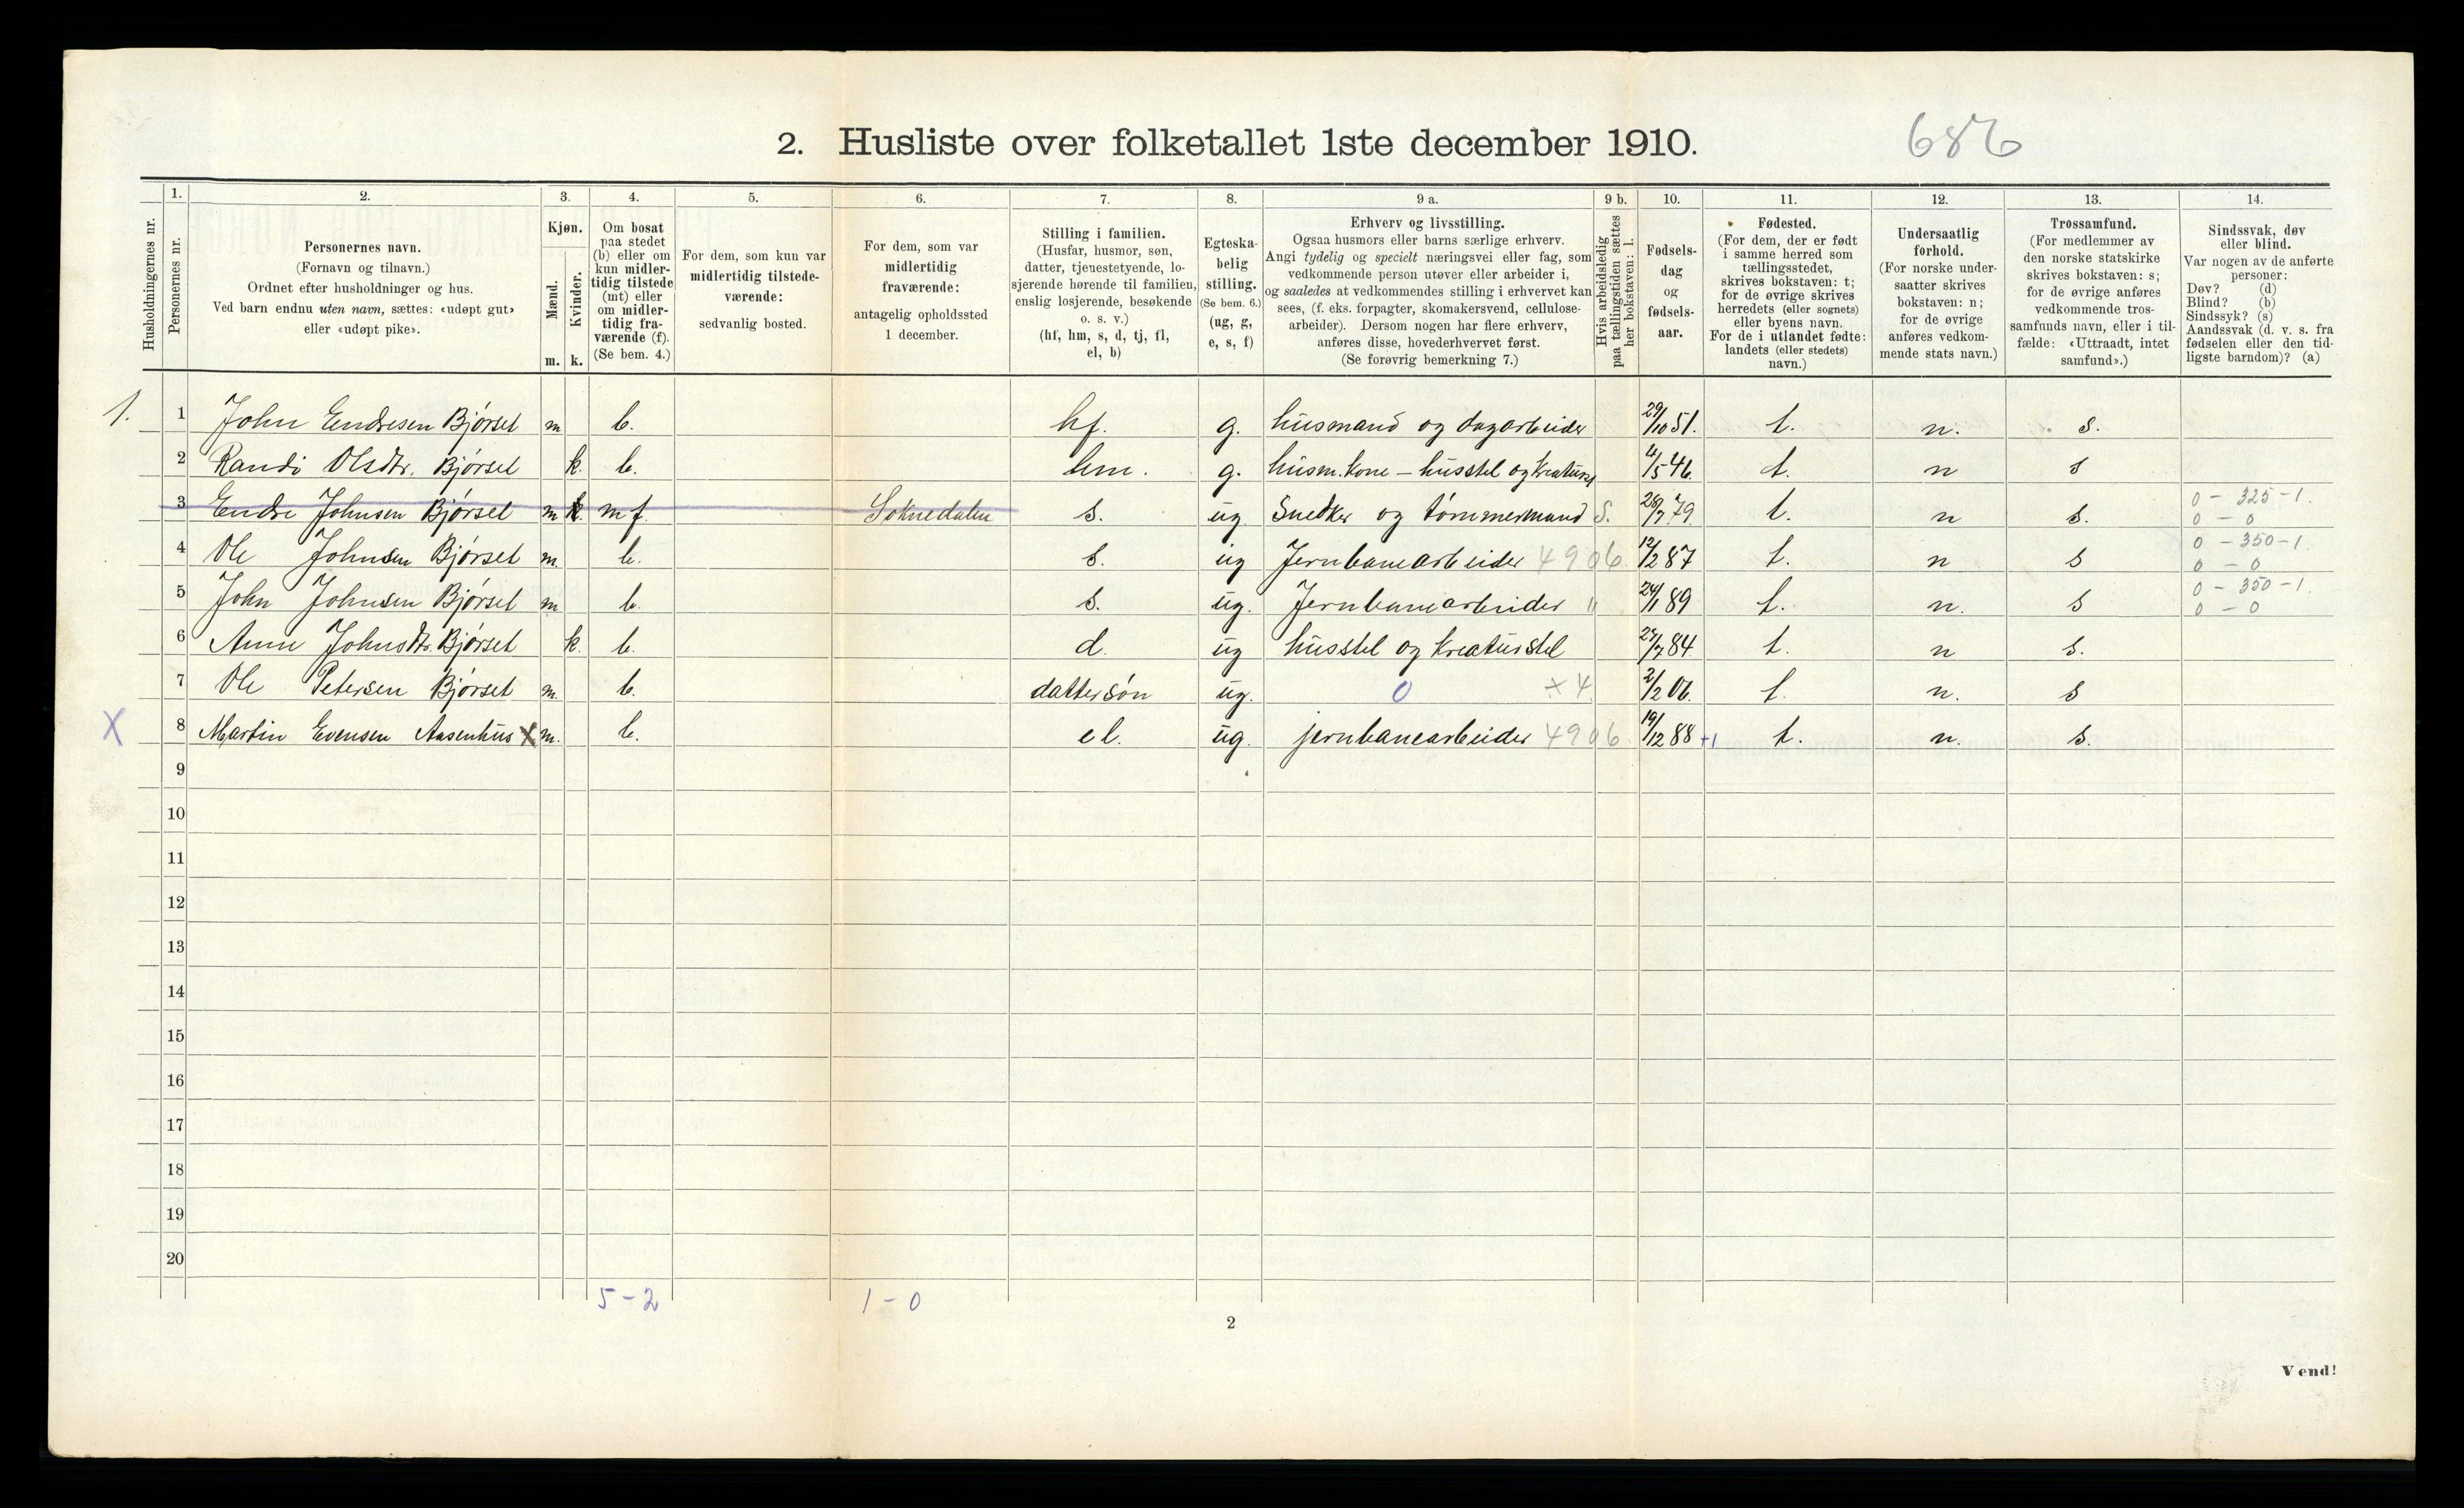 2. Husliste over folketallet 1ste december 1910.
686
Husholdningernes nr.
1.
Personernes nr.
2.
Personernes navn.
(Fornavn og tilnavn.)
Ordnet efter husholdninger og hus.
Ved barn endnu uten navn, sættes: «udøpt gut»
eller «udøpt pike».
3.
Kjøn.
Mænd.
Kvinder.
m. k.
4.
Om bosat
paa stedet
(b) eller om
kun midler-
tidig tilstede
(mt) eller
om midler-
tidig fra-
værende (f).
(Se bem. 4.)
5.
For dem, som kun var
midlertidig tilstede-
værende:
sedvanlig bosted.
6.
For dem, som var
midlertidig
fraværende:
antagelig opholdssted
1 december.
7.
Stilling i familien.
(Husfar, husmor, søn,
datter, tjenestetyende, lo-
sjerende hørende til familien,
enslig losjerende, besøkende
o. s. v.)
(hf, hm, s, d, tj, fl,
el, b)
8.
Egteska-
belig
stilling.
(Se bem. 6.)
(ug, g,
e, s, f)
9 a.
Erhverv og livsstilling.
Ogsaa husmors eller barns særlige erhverv.
Angi tydelig og specielt næringsvei eller fag, som
vedkommende person utøver eller arbeider i,
og saaledes at vedkommendes stilling i erhvervet kan
sees, (f. eks. forpagter, skomakersvend, cellulose-
arbeider). Dersom nogen har flere erhverv,
anføres disse, hovederhvervet først.
(Se forøvrig bemerkning 7.)
9 b.
Hvis arbeidsledig
paa tællingstiden sættes
her bokstaven: l.
10.
Fødsels-
dag
og
fødsels-
aar.
11.
Fødested.
(For dem, der er født
i samme herred som
tællingsstedet,
skrives bokstaven: t;
for de øvrige skrives
herredets (eller sognets)
eller byens navn.
For de i utlandet fødte:
landets (eller stedets)
navn.)
12.
Undersaatlig
forhold.
(For norske under-
saatter skrives
bokstaven: n;
for de øvrige
anføres vedkom-
mende stats navn.)
13.
Trossamfund.
(For medlemmer av
den norske statskirke
skrives bokstaven: s;
for de øvrige anføres
vedkommende tros-
samfunds navn, eller i til-
fælde: «Uttraadt, intet
samfund».)
14.
Sindssvak, døv
eller blind.
Var nogen av de anførte
personer:
Døv? (d)
Blind? (b)
Sindssyk? (s)
Aandssvak (d. v. s. fra
fødselen eller den tid-
ligste barndom)? (a)
1. 1 John Endresen Bjørset m b. hf. g. husmand og dagarbeider 29/10 51. t. n. s.
2 Randi Olsdtr. Bjørset k. b. hm. g. husm.kone - husstel og kreaturst 4/5 46. t. n s
3 Endre Johnsen Bjørset m k. mf. Soknedalen s. ug. Snedker og tømmermand S. 28/7 79. t. n s. 0 - 325 - 1.
0 - 0
4 Ole Johnsen Bjørset m. b. s. ug Jernbanearbeider 4906 12/2 87 t. n s 0 - 350 - 1.
0 - 0
5 John Johnsen Bjørset m b. s. ug. Jernbanearbeider " 24/1 89 t. n. s 0 - 350 - 1
0 - 0
6 Anne Johnsdtr. Bjørset k. b. d. ug husstel og kreaturstel 27/7 84 t. n s.
7 Ole Petersen Bjørset m. b. dattersøn ug. 0 x 4 2/2 06. t. n. s
X 8 Martin Evensen Aasenhus X m. b. el. ug. jernbanearbeider 4906 19/12 88 +1 t. n. s.
9
10
11
12
13
14
15
16
17
18
19
20
5 - 2 1 - 0
2
Vend!